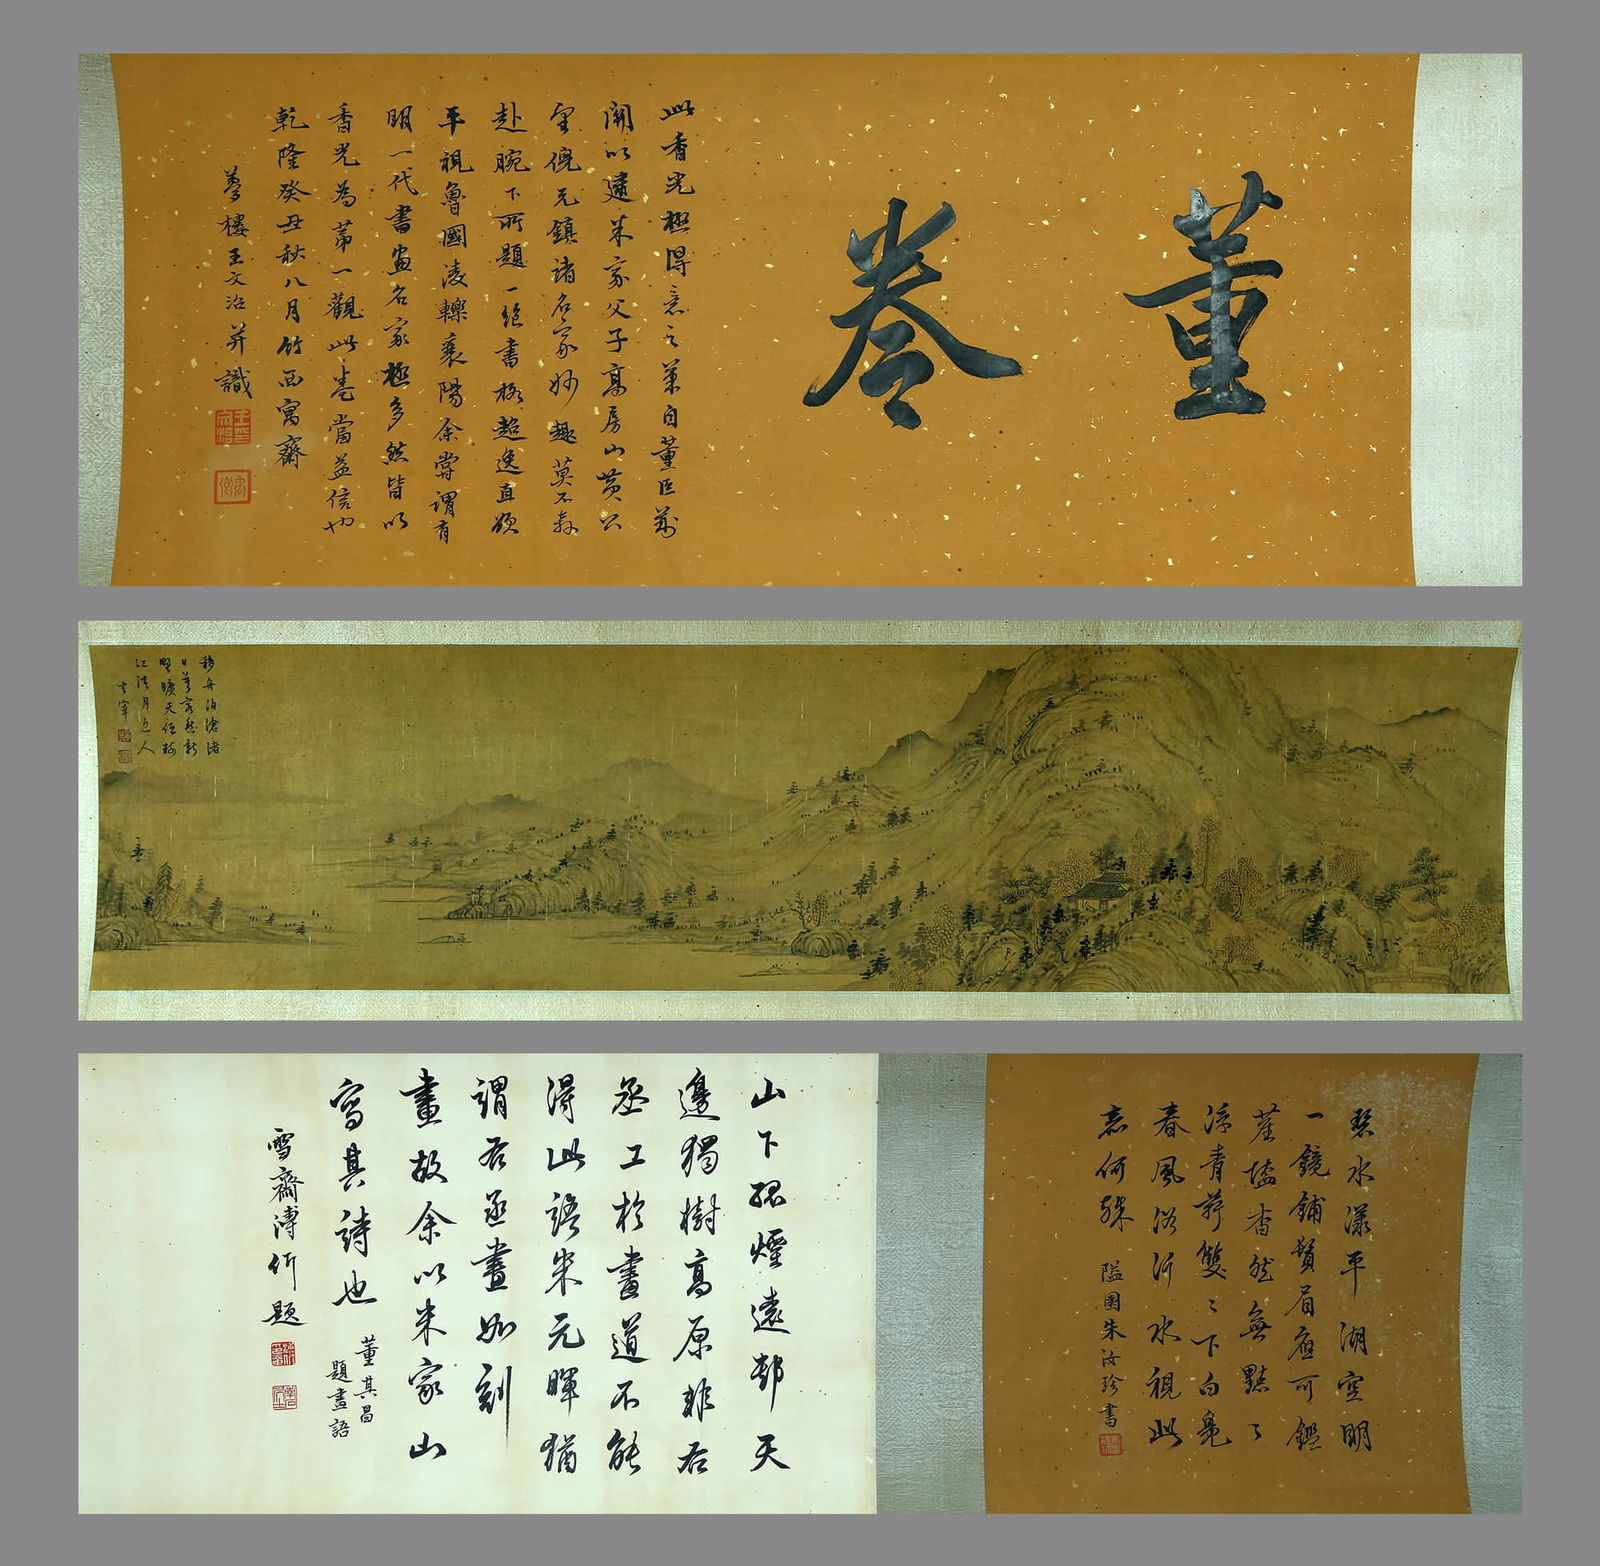 董卷
此香光極得意之筆自董巨荊
關以逮米家父子高房山黃公
望倪元鎮諸名家妙趣莫不奔
赴腕下所題一絕書極超逸直欲
平視魯國淩轢襄陽余嘗謂有
明一代書畫名家極多然皆以
香光為第一觀此卷當益信也
乾隆癸丑秋八月竹西寓齋
夢樓王文治并識
移舟泊滄渚
日暮客愁新
野曠天低樹
江清月近人
玄宰
碧水漾平湖空明
一鏡鋪鬚眉應可鑑
崖壒杳然無點〻
浮青荇雙〻下白鳧
春風浴沂水視此
意何殊
隘園朱汝珍書
山下孤煙遠邨天
邊獨樹高原非右
丞工於畫道不能
得此語米元暉猶
謂右丞畫如刻
畫故余以米家山
寫其詩也
董其昌
題畫語
雪齋溥伒題